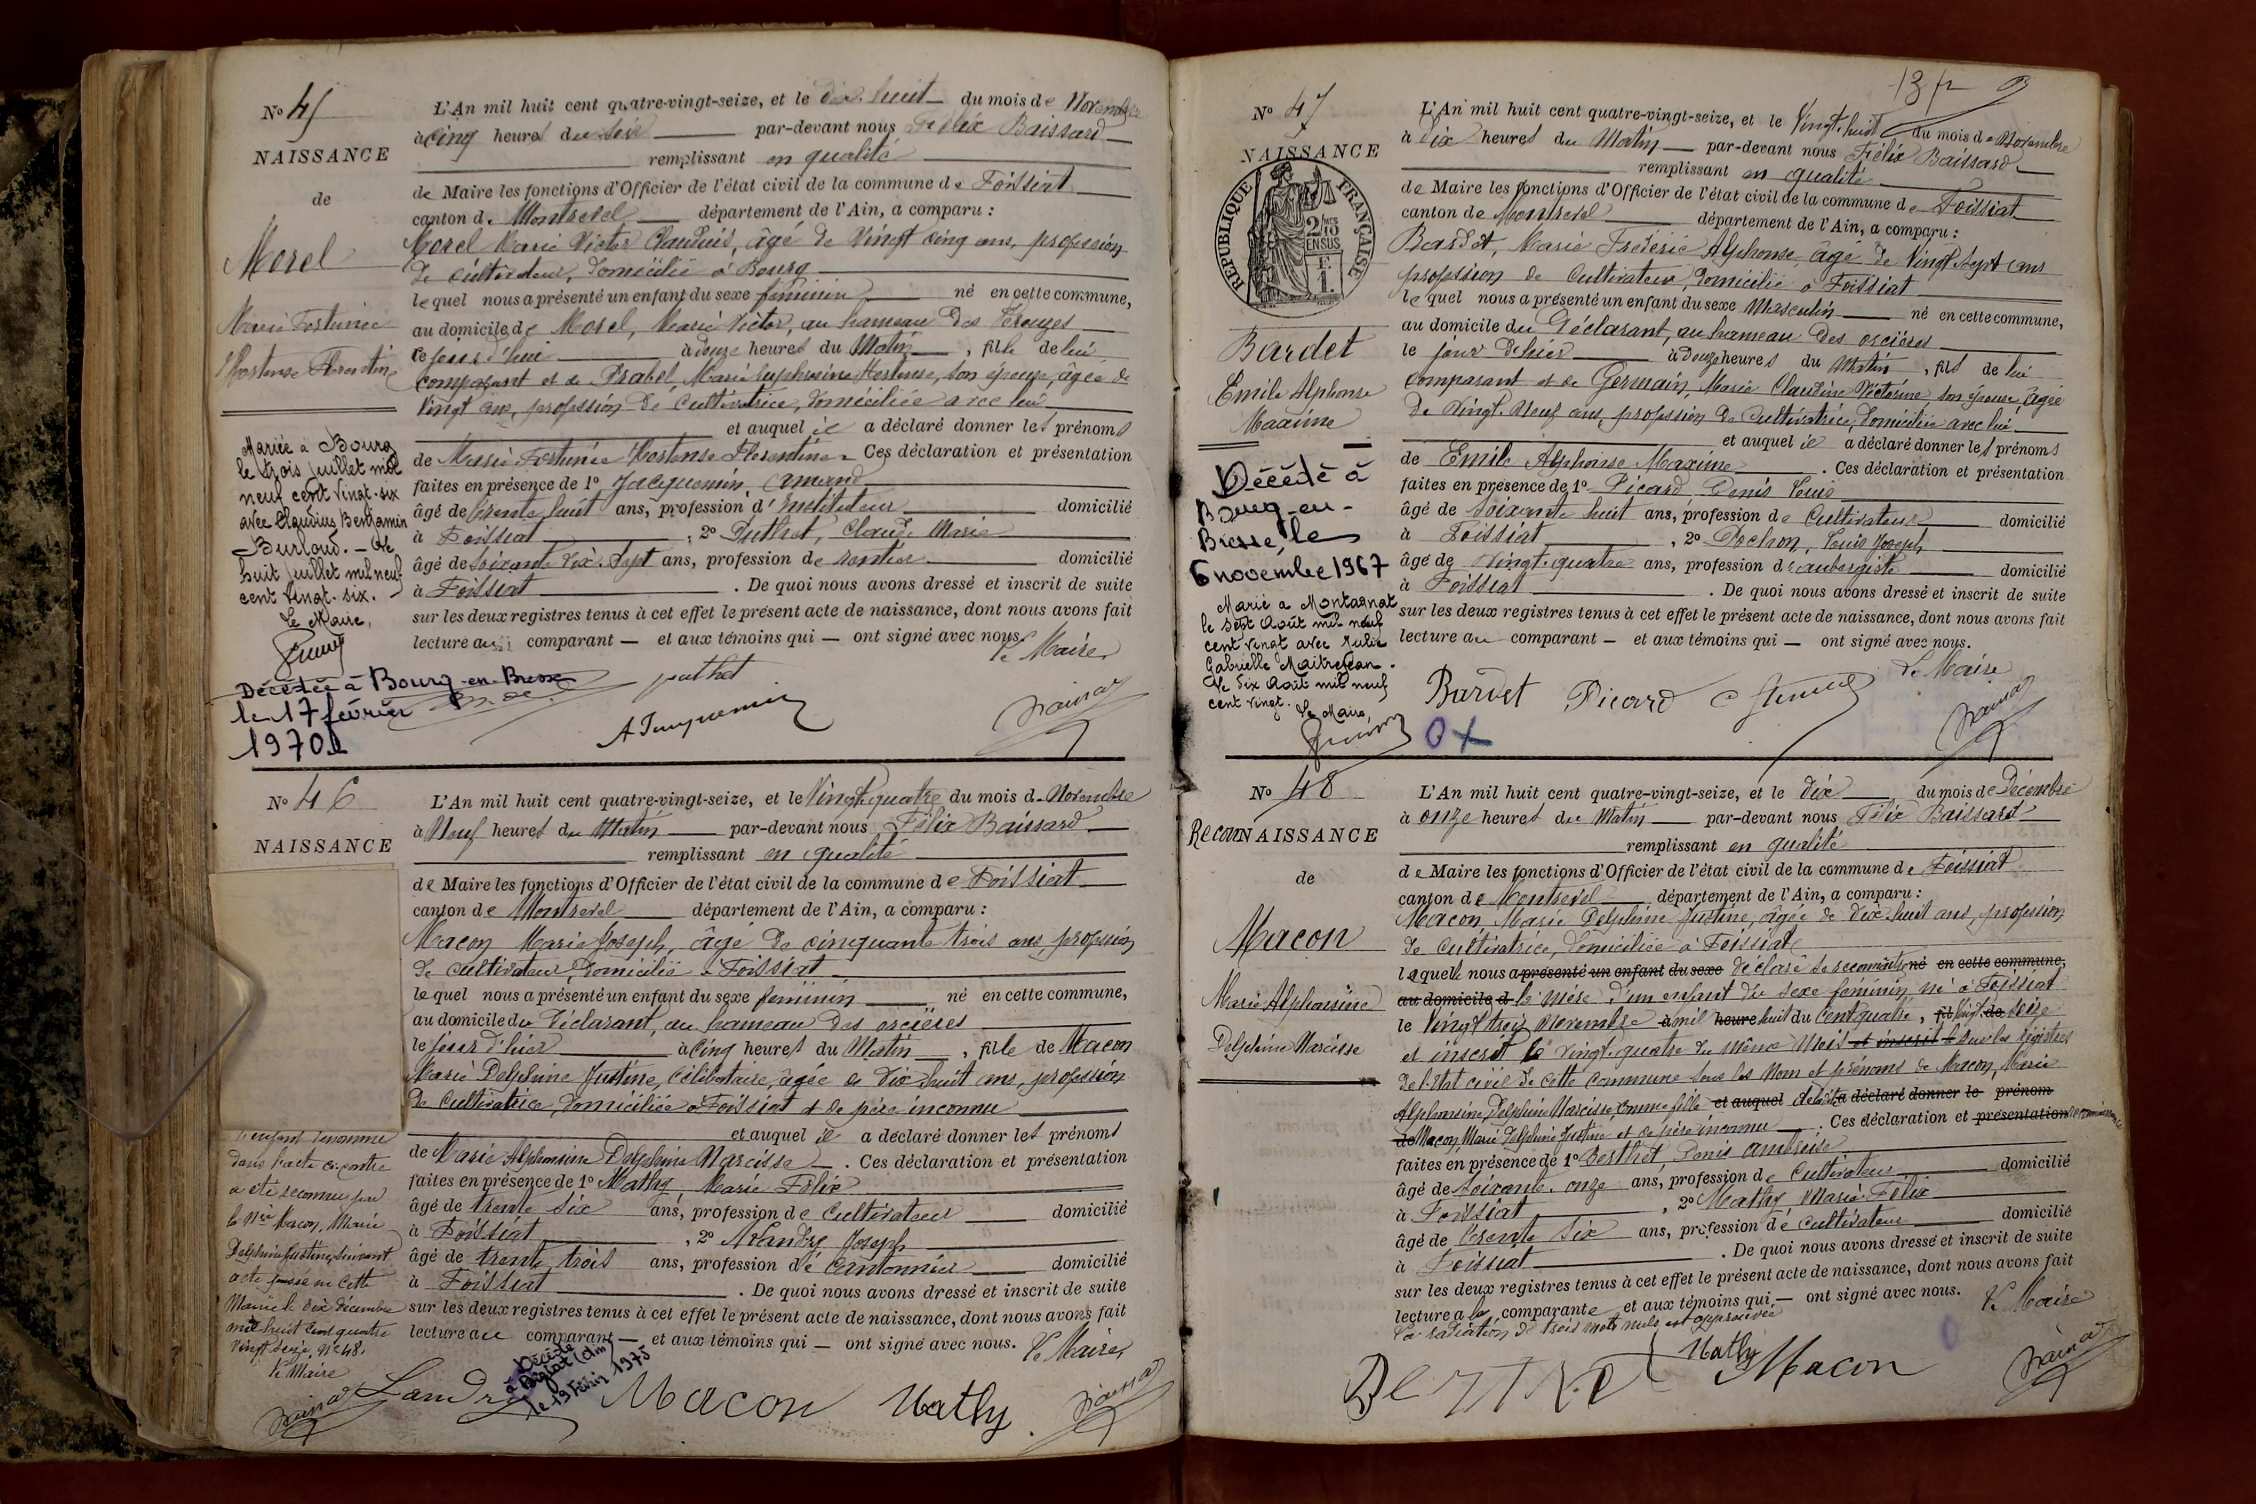 N° 45
NAISSANCE
de
Morel
Marie Fortunée
Hortense Florentine
Mariée à Bourg
le trois juillet mil
neuf cent vingt-six
avec Claudius Benjamin
Burloud. — Le
huit juillet mil neuf
cent vingt-six.
Le Maire,
Décédée à Bourg-en-Bresse
le 17 février
1970
L'An mil huit cent quatre-vingt-seize, et le dix-huit du mois de Novembre
à cinq heures du soir par-devant nous Félix Baissard
remplissant en qualité
de Maire les fonctions d'Officier de l'état civil de la commune de Foissiat
canton de Montrevel département de l'Ain, a comparu :
Morel Marie Victor Claudius, âgé de Vingt cinq ans, profession
de cultivateur, domicilié à Bourg
lequel nous a présenté un enfant du sexe féminin né en cette commune,
au domicile de Morel, Marie Victor, au hameau des
ce jourd'hui à douze heures du Matin, fille de lui
comparant et de Marie Euphrosine Hortense, son épouse, âgée de
Vingt ans, profession de cultivatrice, domiciliée avec lui
et auquel il a déclaré donner les prénoms
de Marie Fortunée Hortense Florentine. Ces déclaration et présentation
faites en présence de 1° Jacquemin, Amand
âgé de trente huit ans, profession d'Instituteur domicilié
à Foissiat, 2° Puthet, Claude Marie
âgé de soixante dix-sept ans, profession de rentier domicilié
à Foissiat. De quoi nous avons dressé et inscrit de suite
sur les deux registres tenus à cet effet le présent acte de naissance, dont nous avons fait
lecture au comparant — et aux témoins qui — ont signé avec nous.
Le Maire
puthet
A Jacquemin
N° 46
NAISSANCE
L'enfant dénommé
dans l'acte ci-contre
a été reconnu par
la mère Macon, Marie
Delphine Justine, suivant
acte passé en cette
Mairie le dix Décembre
mil huit cent quatre
vingt seize, N° 48.
Le Maire
L'An mil huit cent quatre-vingt-seize, et le Vingt-quatre du mois de Novembre
à Neuf heures du Matin par-devant nous Félix Baissard
remplissant en qualité
de Maire les fonctions d'Officier de l'état civil de la commune de Foissiat
canton de Montrevel département de l'Ain, a comparu :
Macon Marie Joseph, âgé de cinquante trois ans, profession
de cultivateur, domicilié à Foissiat
lequel nous a présenté un enfant du sexe féminin né en cette commune,
au domicile du Déclarant, au hameau des orcières
le jour d'hier à Cinq heures du Matin, fille de Macon
Marie Delphine Justine, célibataire, âgée de dix-huit ans, profession
de Cultivatrice, domiciliée à Foissiat & de père inconnu
et auquel il a déclaré donner les prénoms
de Marie Alphonsine Delphine Narcisse. Ces déclaration et présentation
faites en présence de 1° Mathy Marie Félix
âgé de trente six ans, profession de Cultivateur domicilié
à Foissiat, 2° Joseph
âgé de trente trois ans, profession de cantonnier domicilié
à Foissiat. De quoi nous avons dressé et inscrit de suite
sur les deux registres tenus à cet effet le présent acte de naissance, dont nous avons fait
lecture au comparant — et aux témoins qui — ont signé avec nous.
Le Maire,
Décédé
le 19 Février 1975
Macon
Mathy
13
N° 47
NAISSANCE
RÉPUBLIQUE FRANÇAISE
2/10
EN SUS
Bardet
Emile Alphonse
Maxime
Décédé à
Bourg-en-
Bresse, le
6 novembre 1967
Marié à Montagnat
le sept Août mil neuf
cent vingt avec Julie
Gabrielle Maitrejean.
Le dix Août mil neuf
cent vingt.
Le Maire,
L'An mil huit cent quatre-vingt-seize, et le Vingt-huit du mois de Novembre
à dix heures du Matin par-devant nous Félix Baissard
remplissant en qualité
de Maire les fonctions d'Officier de l'état civil de la commune de Foissiat
canton de Montrevel département de l'Ain, a comparu :
Bardet, Marie Frédéric Alphonse, âgé de Vingt Sept ans
profession de Cultivateur, domicilié à Foissiat
lequel nous a présenté un enfant du sexe Masculin né en cette commune,
au domicile du Déclarant, au hameau des orcières
le jour d'hier à Douze heures du Matin, fils de lui
comparant et de Germain, Marie Claudine Victorine son épouse, âgée
de vingt-neuf ans, profession de Cultivatrice, domiciliée avec lui
et auquel il a déclaré donner les prénoms
de Emile Alphonse Maxime. Ces déclaration et présentation
faites en présence de 1° Picard, Denis Louis
âgé de soixante huit ans, profession de Cultivateur domicilié
à Foissiat, 2° Pochon, Louis Joseph
âgé de vingt-quatre ans, profession d'aubergiste domicilié
à Foissiat. De quoi nous avons dressé et inscrit de suite
sur les deux registres tenus à cet effet le présent acte de naissance, dont nous avons fait
lecture au comparant — et aux témoins qui — ont signé avec nous.
Le Maire
Bardet Picard
N° 48
ReconNAISSANCE
de
Macon
Marie Alphonsine
Delphine Narcisse
L'An mil huit cent quatre-vingt-seize, et le dix du mois de Décembre
à onze heures du Matin par-devant nous Félix Baissard
remplissant en qualité
de Maire les fonctions d'Officier de l'état civil de la commune de Foissiat
canton de Montrevel département de l'Ain, a comparu :
Macon Marie Delphine Justine, âgée de dix-huit ans, profession
de cultivatrice, domiciliée à Foissiat
laquelle nous a présenté un enfant du sexe déclaré se reconnaître né en cette commune,
au domicile d la mère d'un enfant du sexe féminin né à Foissiat
le Vingt trois Novembre à mil heure huit du Cent quatre, fil vingt de seize
et inscrit le vingt-quatre du même mois et inscrit le sur les registres
de l'état civil de cette commune sous les nom et prénoms de Macon, Marie
Alphonsine Delphine Narcisse, comme fille et auquel de ladite a déclaré donner le prénom
de Macon, Marie Delphine Justine et de père inconnu. Ces déclaration et présentation reconnaissance
faites en présence de 1° Berthet, Denis ambroise
âgé de soixante-onze ans, profession de Cultivateur domicilié
à Foissiat, 2° Mathy Marie Félix
âgé de trente six ans, profession de cultivateur domicilié
à Foissiat. De quoi nous avons dressé et inscrit de suite
sur les deux registres tenus à cet effet le présent acte de naissance, dont nous avons fait
lecture à la comparante et aux témoins qui — ont signé avec nous.
La radiation de trois mots nuls est approuvée
Le Maire
Mathy Macon